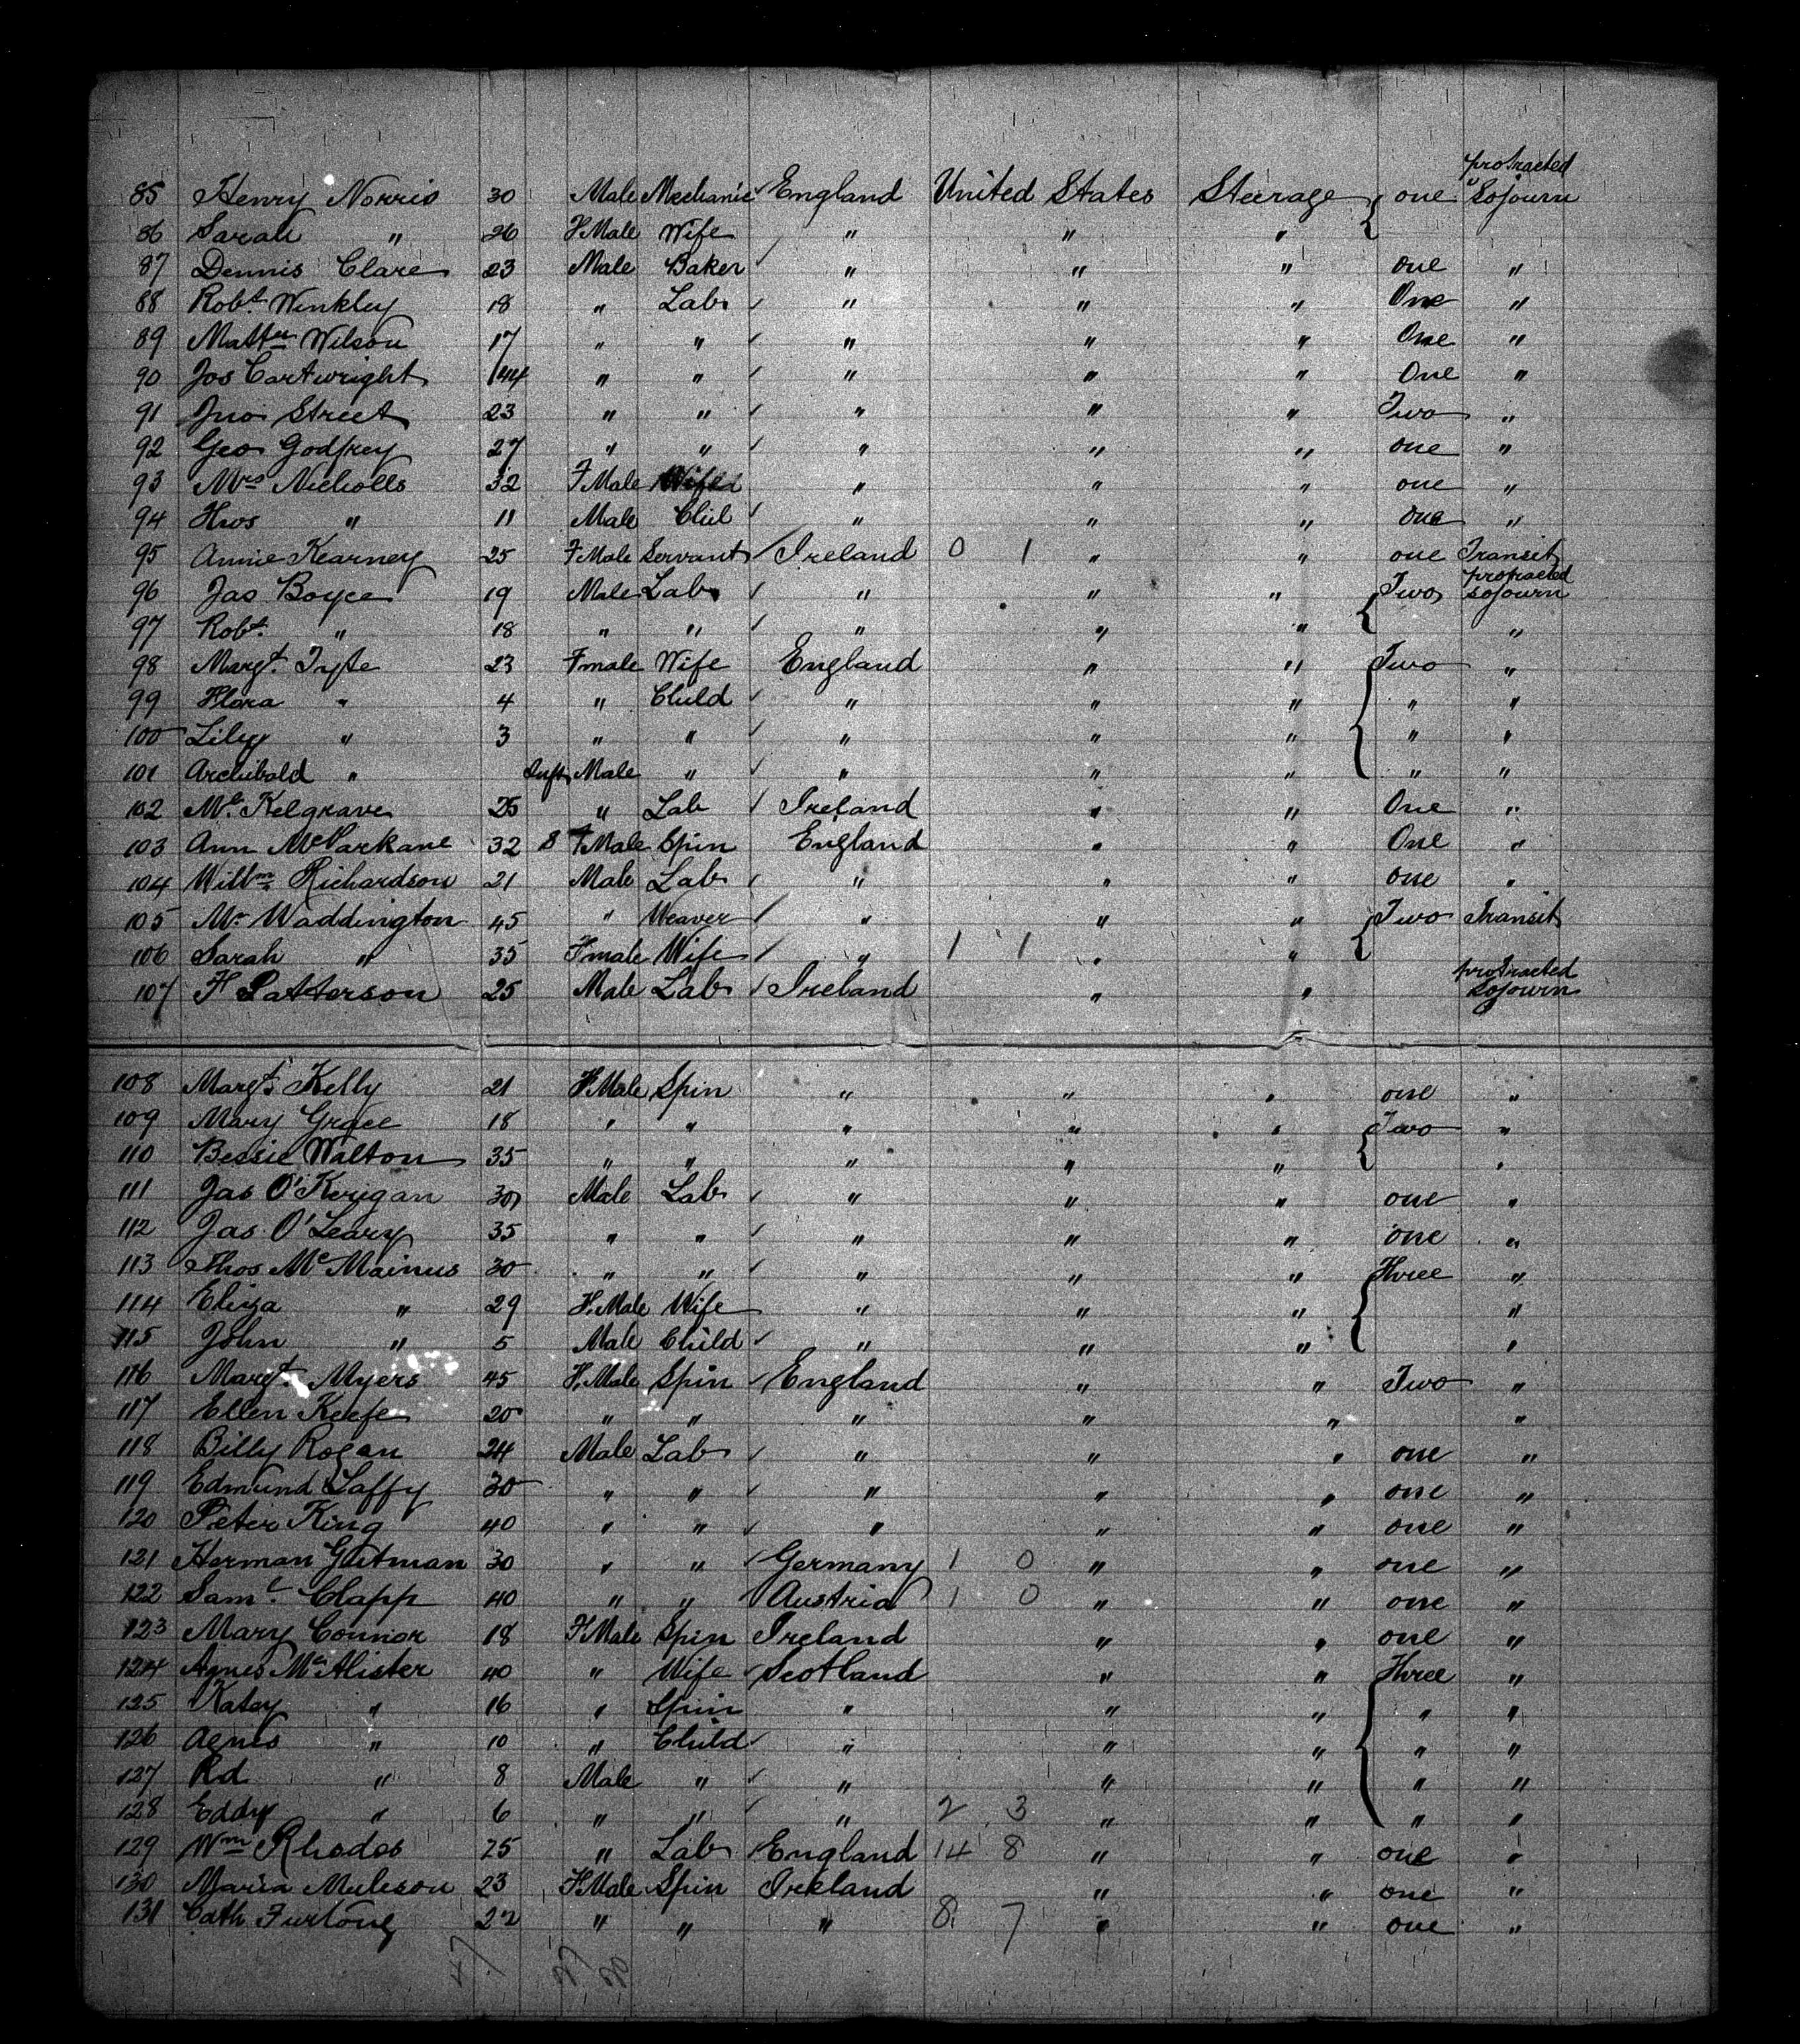 85 Henry Norris 30 Male Mechanic England United States Steerage one protracted Sojourn
86 Sarah " 26 F Male Wife " " "
87 Dennis Clare 23 Male Baker " " " one "
88 Robt. Winkley 18 " Lab " " " One "
89 Mattw Wilson 17 " " " " " One "
90 Jos Cartwright 44 " " " " " One "
91 Jno Street 23 " " " " " Two "
92 Geo Godfrey 27 " " " " " one "
93 Mrs Nicholls 32 F Male Wife " " " one "
94 " 11 Male Chil " " " one "
95 Annie Kearney 25 F Male Servant Ireland 0 1 " " one Transit
96 Jas Boyce 19 Male Lab " " " Two protracted sojourn
97 Robt. " 18 " " " " " "
98 Margt. 23 Fmale Wife England " " Two "
99 Flora " 4 " Child " " " " "
100 Lily " 3 " " " " " " "
101 Archibald " Inft Male " " " " " "
102 Kelgrave 25 " Lab Ireland " " One "
103 Ann McParkane 32 8 F Male Spin England " " One "
104 Willm Richardson 21 Male Lab " " " one "
105 Mr Waddington 45 " Weaver " " " Two Transit
106 Sarah " 35 Fmale Wife " 1 1 " "
107 H Patterson 25 Male Lab Ireland " " protracted Sojourn
108 Margt. Kelly 21 F Male Spin " " " one "
109 Mary Grace 18 " " " " " Two "
110 Bessie Walton 35 " " " " " "
111 Jas O'Kerigan 30 Male Lab " " " one "
112 Jas. O'Leary 35 " " " " " one "
113 Thos McMainus 30 " " " " " Three "
114 Eliza " 29 F. Male Wife " " " "
115 John " 5 Male Child " " " "
116 Margt. Myers 45 F. Male Spin England " " Two "
117 Ellen Keefe 20 " " " " " "
118 Billy Rogan 24 Male Lab " " " one "
119 Edmund Laffy 30 " " " " " one "
120 Peter King 40 " " " " " one "
121 Herman Gutman 30 " " Germany 1 0 " " one "
122 Saml. Clapp 40 " " Austria 1 0 " " one "
123 Mary Connor 18 F Male Spin Ireland " " one "
124 Agnes McAlister 40 " Wife Scotland " " Three "
125 Katey " 16 " Spin " " " " "
126 Agnes " 10 " Child " " " " "
127 Rd " 8 Male " " " " " "
128 Eddy " 6 " " " 2 3 " " " "
129 Wm Rhodes 25 " Lab England 14 8 " " one "
130 Maria Muleson 23 F Male Spin Ireland " " one "
131 Cath Furlong 22 " " " 8 7 " " one "
47